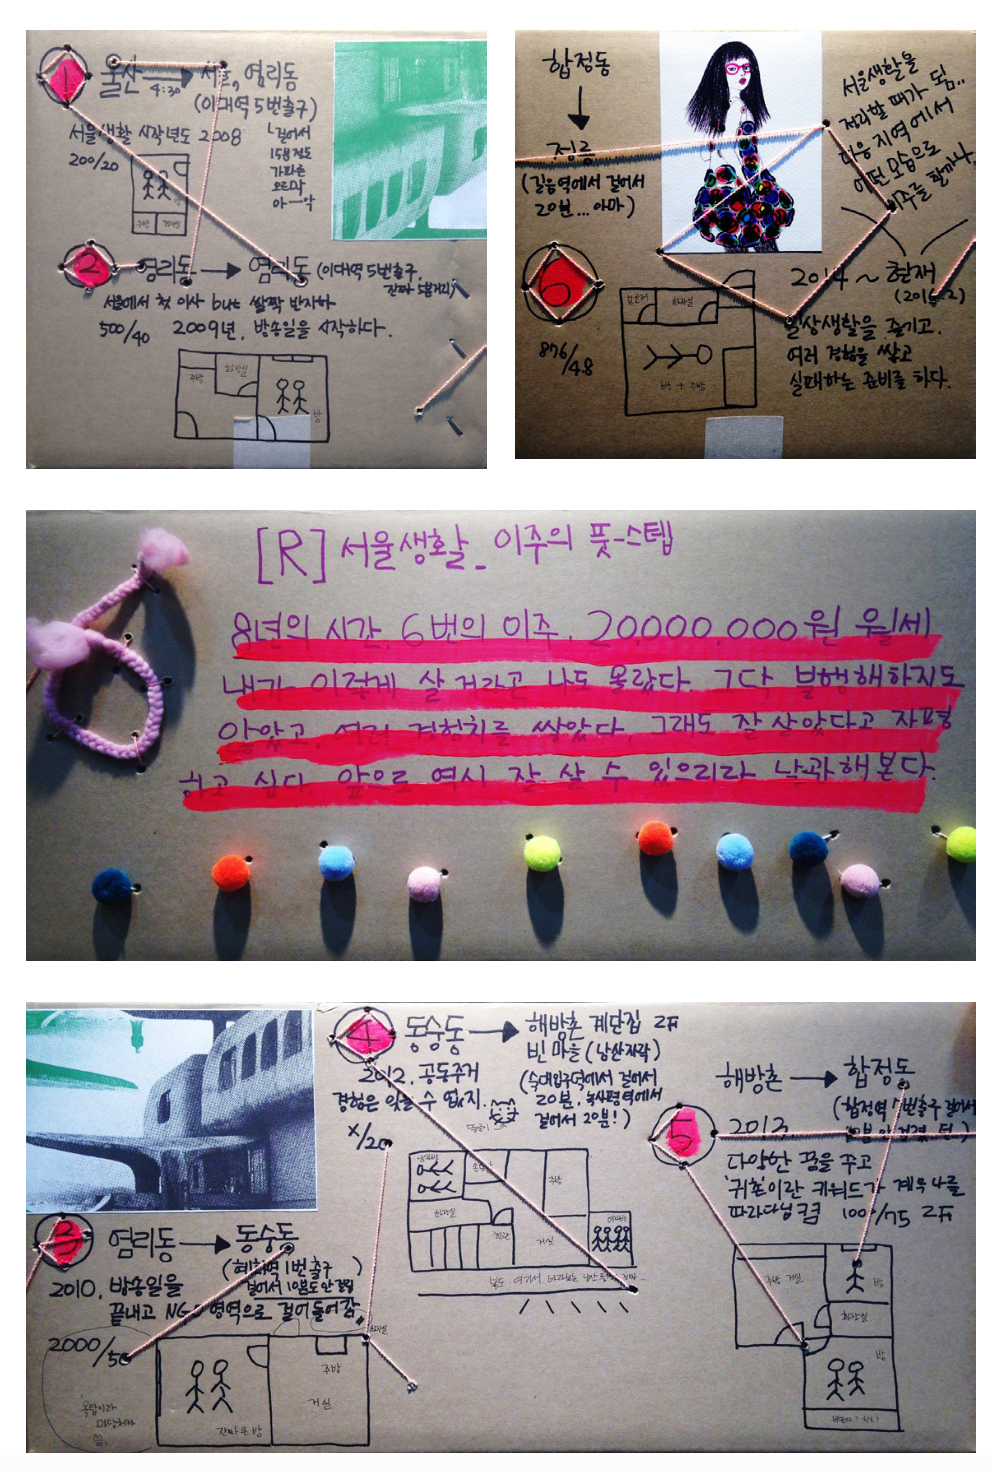 1
울산 → 서울, 염리동
4:30
(이대역 5번출구)
서울생활 시작년도 2008
200/20
걸어서
15분 정도
가파른
오르막
아—악
2
염리동 → 염리동 (이대역 5번출구,
진짜 5분거리)
서울에서 첫 이사 but 살짝 반지하
500/40 2009년, 방송일을 시작하다.
주방
화장실
방
합정동
↓
정릉
(길음역에서 걸어서
20분...아마)
서울생활을
정리할 때가 됨..
다음 지역에서
어떤 모습으로
이주를 할까나.
6
2014 ~ 현재
876/48
화장실
방 + 주방
일상생활을 즐기고.
여러 경험을 쌓고
실패하는 준비를 하다.
[R] 서울생활_ 이주의 풋-스텝
8년의 시간, 6번의 이주, 20,000,000원 월세
내가 이렇게 살 거라고 나도 몰랐다. 그닥 불행해하지도
않았고, 여러 경험치를 쌓았다, 그래도 잘 살았다고 자평
하고 싶다. 앞으로 역시 잘 살 수 있으리라 낙관해본다.
3
염리동 → 동숭동
(혜화역 1번 출구
걸어서 10분도 안걸림)
2010, 방송일을
끝내고 NGO영역으로 걸어들어감,,
2000/50
옥탑이라
진짜 큰 방
거실
주방
화장실
4
동숭동 → 해방촌 계단집 2F
빈 마을 (남산자락)
2012. 공동주거
경험은 잊을 수 없지.
(숙대입구역에서 걸어서
20분, 녹사평역에서
걸어서 2분!)
x/20
주방
거실
5
해방촌 → 합정동
(합정역 7번출구 걸어서
2013.
다양한 꿈을 꾸고
'귀촌'이란 키워드가 계속 나를
따라다님 ㅋㅋ 100/75 2F
주방 거실
방
화장실
방